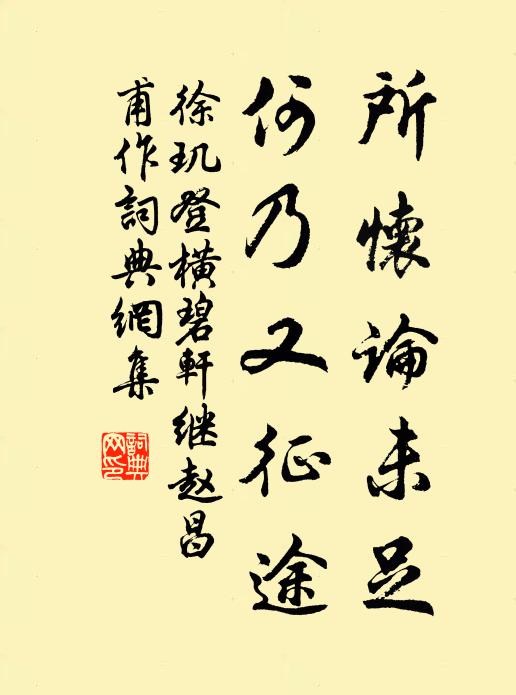 所懷論未足
何乃又征途
徐玑登橫碧軒继赵昌
甫作詞典網集
詞典網印